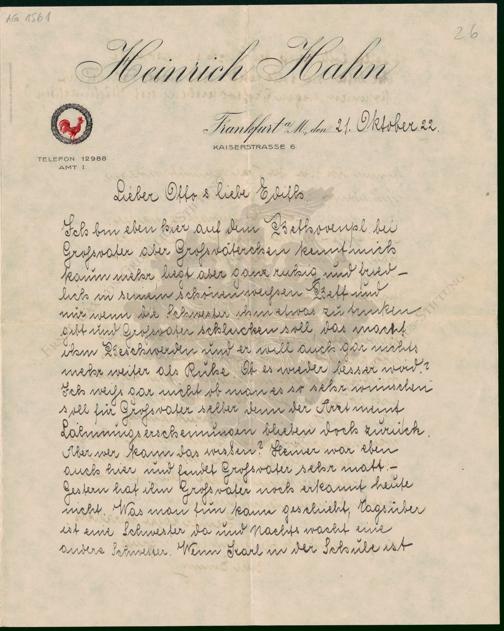 Nr. 1561
26
Heinrich Hahn
Frankfurt a/M, den 21. Oktober 22.
KAISERSTRASSE 6
TELEFON 12988
AMT I.
Lieber Otto & liebe Edith
Ich bin eben hier auf dem Bethovenpl bei
Grossvater aber Grossväterchen kennt mich
kaum mehr liegt aber ganz ruhig und fried-
lich in seinem schönen weissen Bett und
nur wenn die Schwester ihm etwas zu trinken
gibt und Grossvater schlucken soll das macht
ihm Beschwerden und er will auch gar nichts
mehr weiter als Ruhe. Ob es wieder besser word?
Ich weiss gar nicht ob man es so sehr wünschen
soll für Grossvater selber denn der Arzt meint
Lähmungserscheinungen blieben doch zurück.
Aber wer kann das wissen? Heiner war eben
auch hier und findet Grossvater sehr matt-
Gestern hat ihn Grossvater noch erkannt heute
nicht. Was man tun kann geschieht, Tagsüber
ist eine Schwester da und Nachts wacht eine
andere Schwester. Wenn Karl in der Schule ist